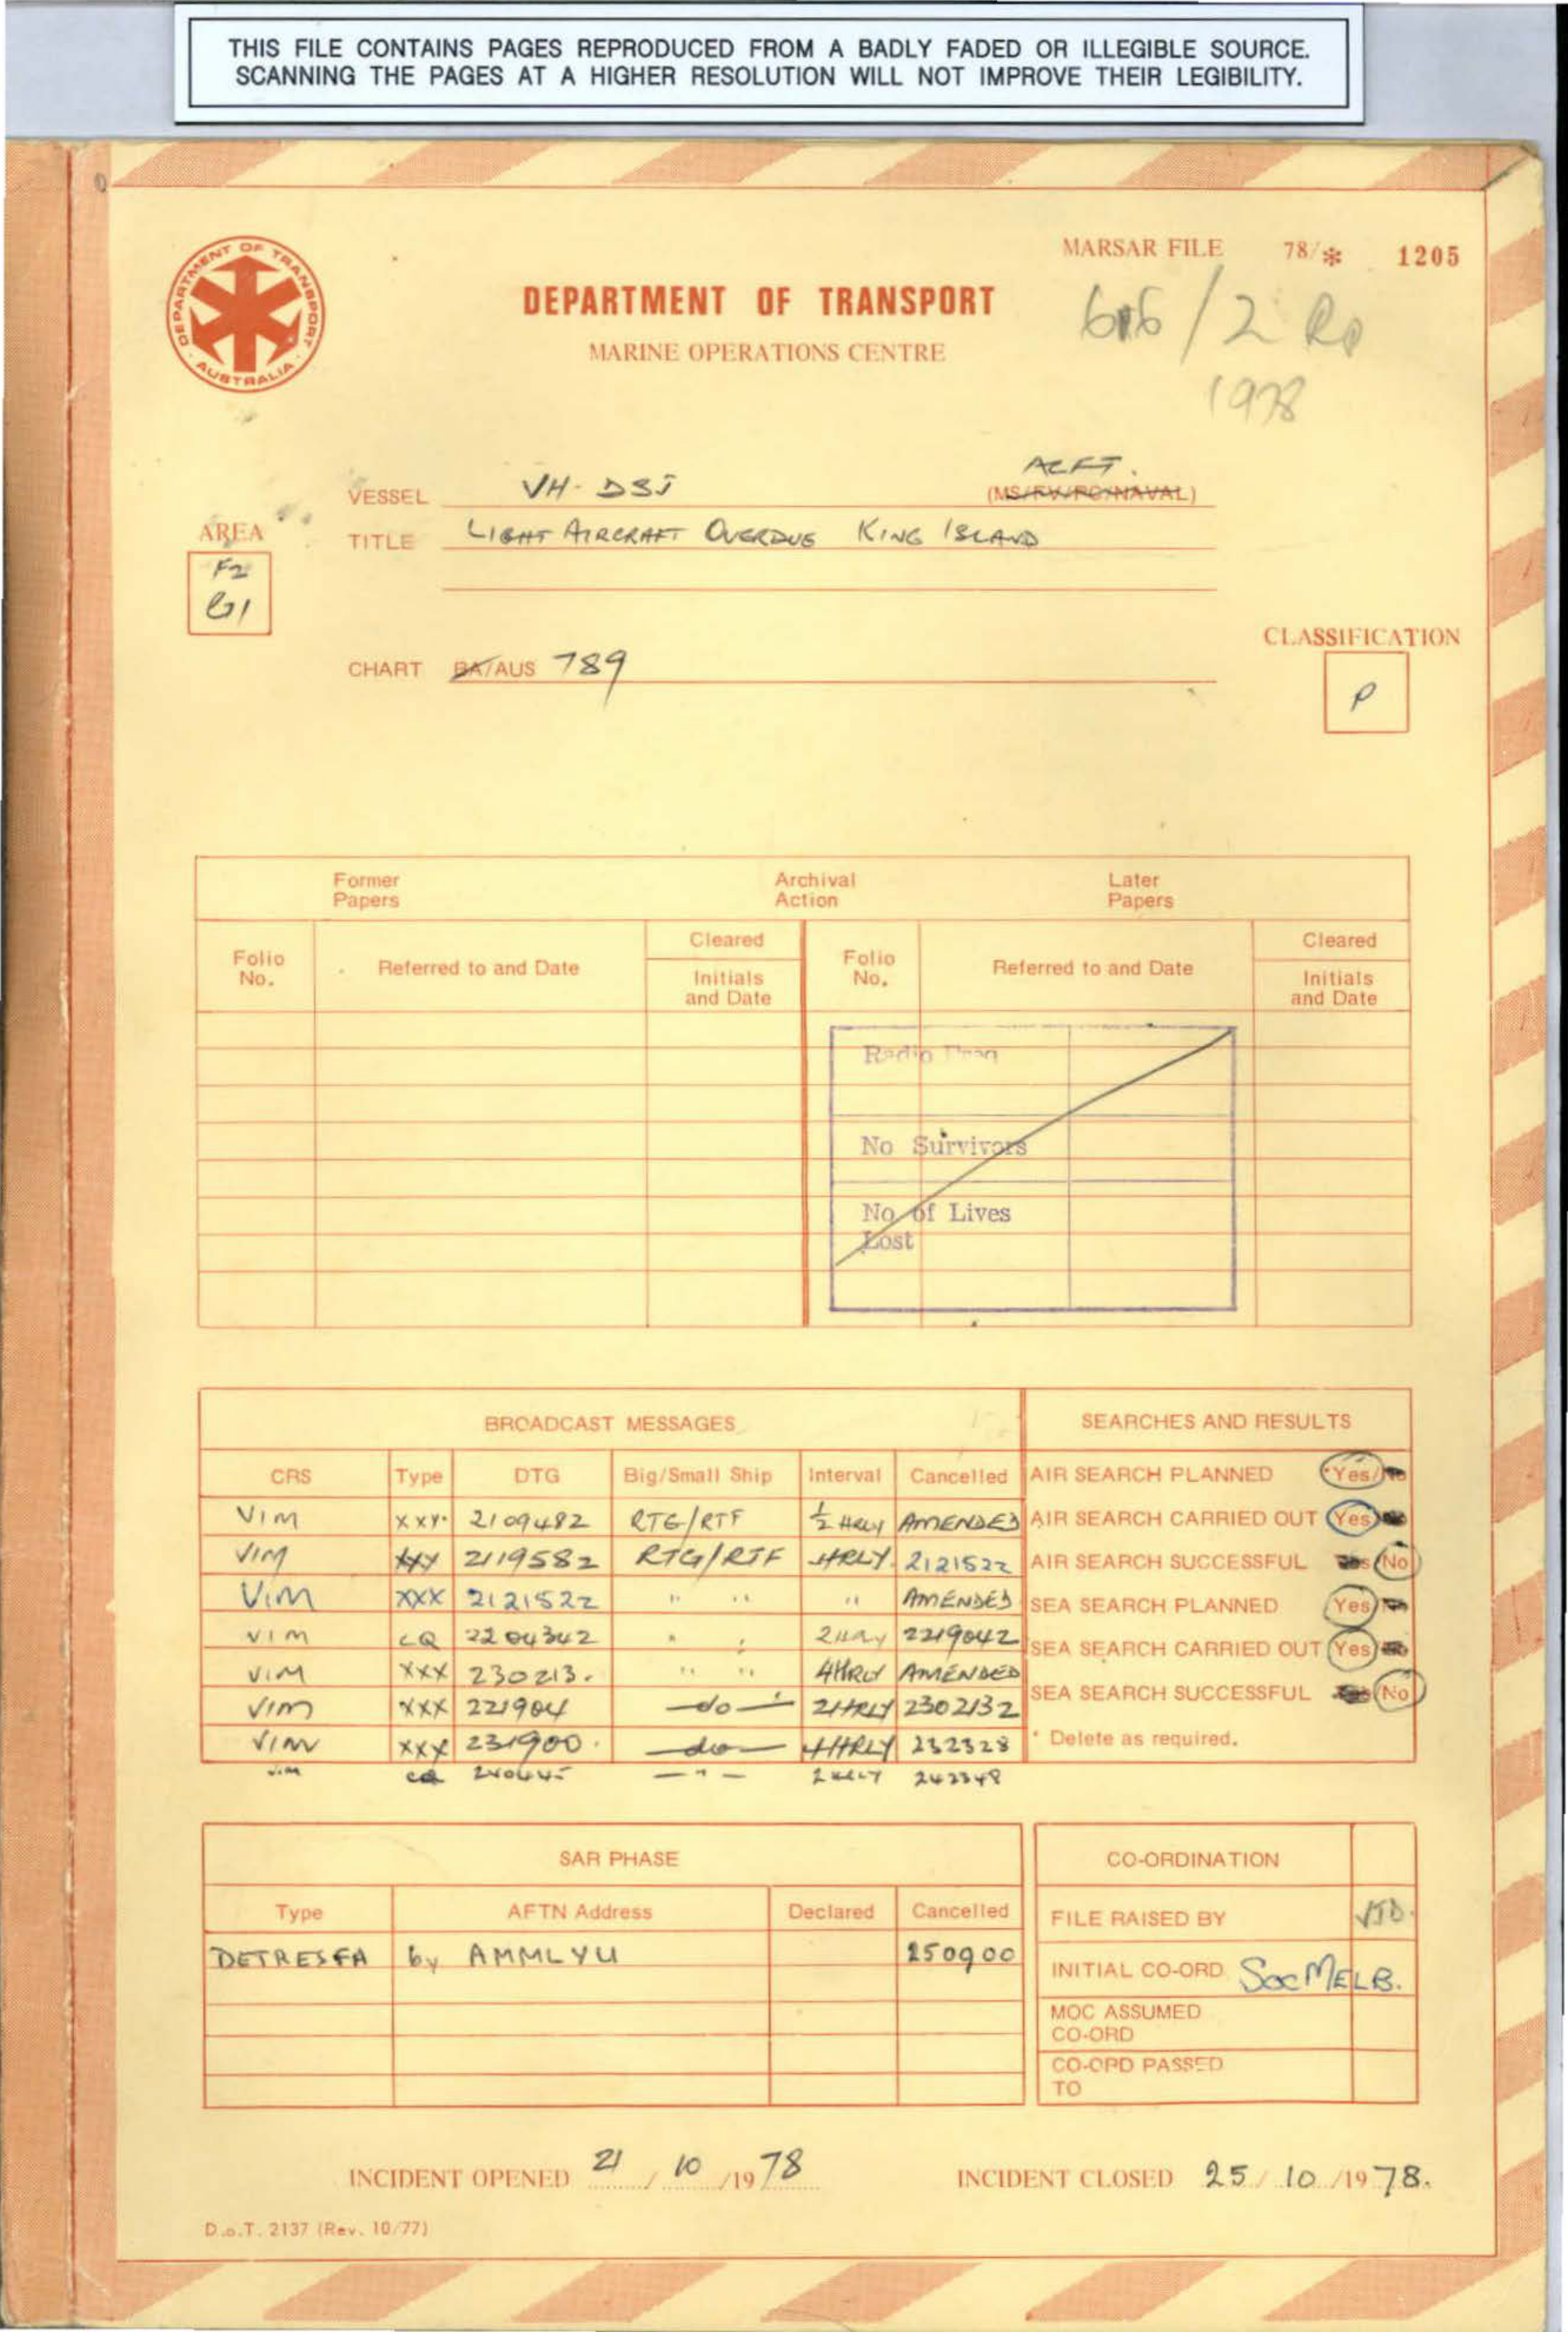 THIS FILE CONTAINS PAGES REPRODUCED FROM A BADLY FADED OR ILLEGIBLE SOURCE.
SCANNING THE PAGES AT A HIGHER RESOLUTION WILL NOT IMPROVE THEIR LEGIBILITY.
DEPARTMENT OF TRANSPORT
AUSTRALIA
MARSAR FILE 78/* 1205
DEPARTMENT OF TRANSPORT
MARINE OPERATIONS CENTRE
1978
ACFT.
VESSEL VH-DSJ (MS/FV/PC/NAVAL)
AREA
TITLE LIGHT AIRCRAFT OVERDUE KING ISLAND
F2
G1
CLASSIFICATION
CHART BA/AUS 789
P
Former Papers Archival Action Later Papers
Folio No. Referred to and Date Cleared Initials and Date Folio No. Referred to and Date Cleared Initials and Date
Radio Freq
No Survivors
No of Lives
Lost
BROADCAST MESSAGES SEARCHES AND RESULTS
CRS Type DTG Big/Small Ship Interval Cancelled AIR SEARCH PLANNED *Yes/No
VIM XXX 210948Z RTG/RTF ½ HRLY AMENDED AIR SEARCH CARRIED OUT Yes
VIM XXX 211958Z RTG/RTF HRLY 212152Z AIR SEARCH SUCCESSFUL Yes No
VIM XXX 212152Z " " " AMENDED SEA SEARCH PLANNED Yes
VIM CQ 220434Z " " 2HRLY 221904Z SEA SEARCH CARRIED OUT Yes
VIM XXX 230213. " " 4HRLY AMENDED
VIM XXX 221904 —do— 2HRLY 230213Z SEA SEARCH SUCCESSFUL No
VIM XXX 231900. —do— 4HRLY 232328 * Delete as required.
VIM CQ 240445 — " — 2HRLY 242348
SAR PHASE CO-ORDINATION
Type AFTN Address Declared Cancelled FILE RAISED BY
DETRESFA by AMMLYU 250900 INITIAL CO-ORD SOC MELB.
MOC ASSUMED
CO-ORD
CO-ORD PASSED
TO
INCIDENT OPENED 21/10/1978 INCIDENT CLOSED 25/10/1978.
D.o.T. 2137 (Rev. 10/77)